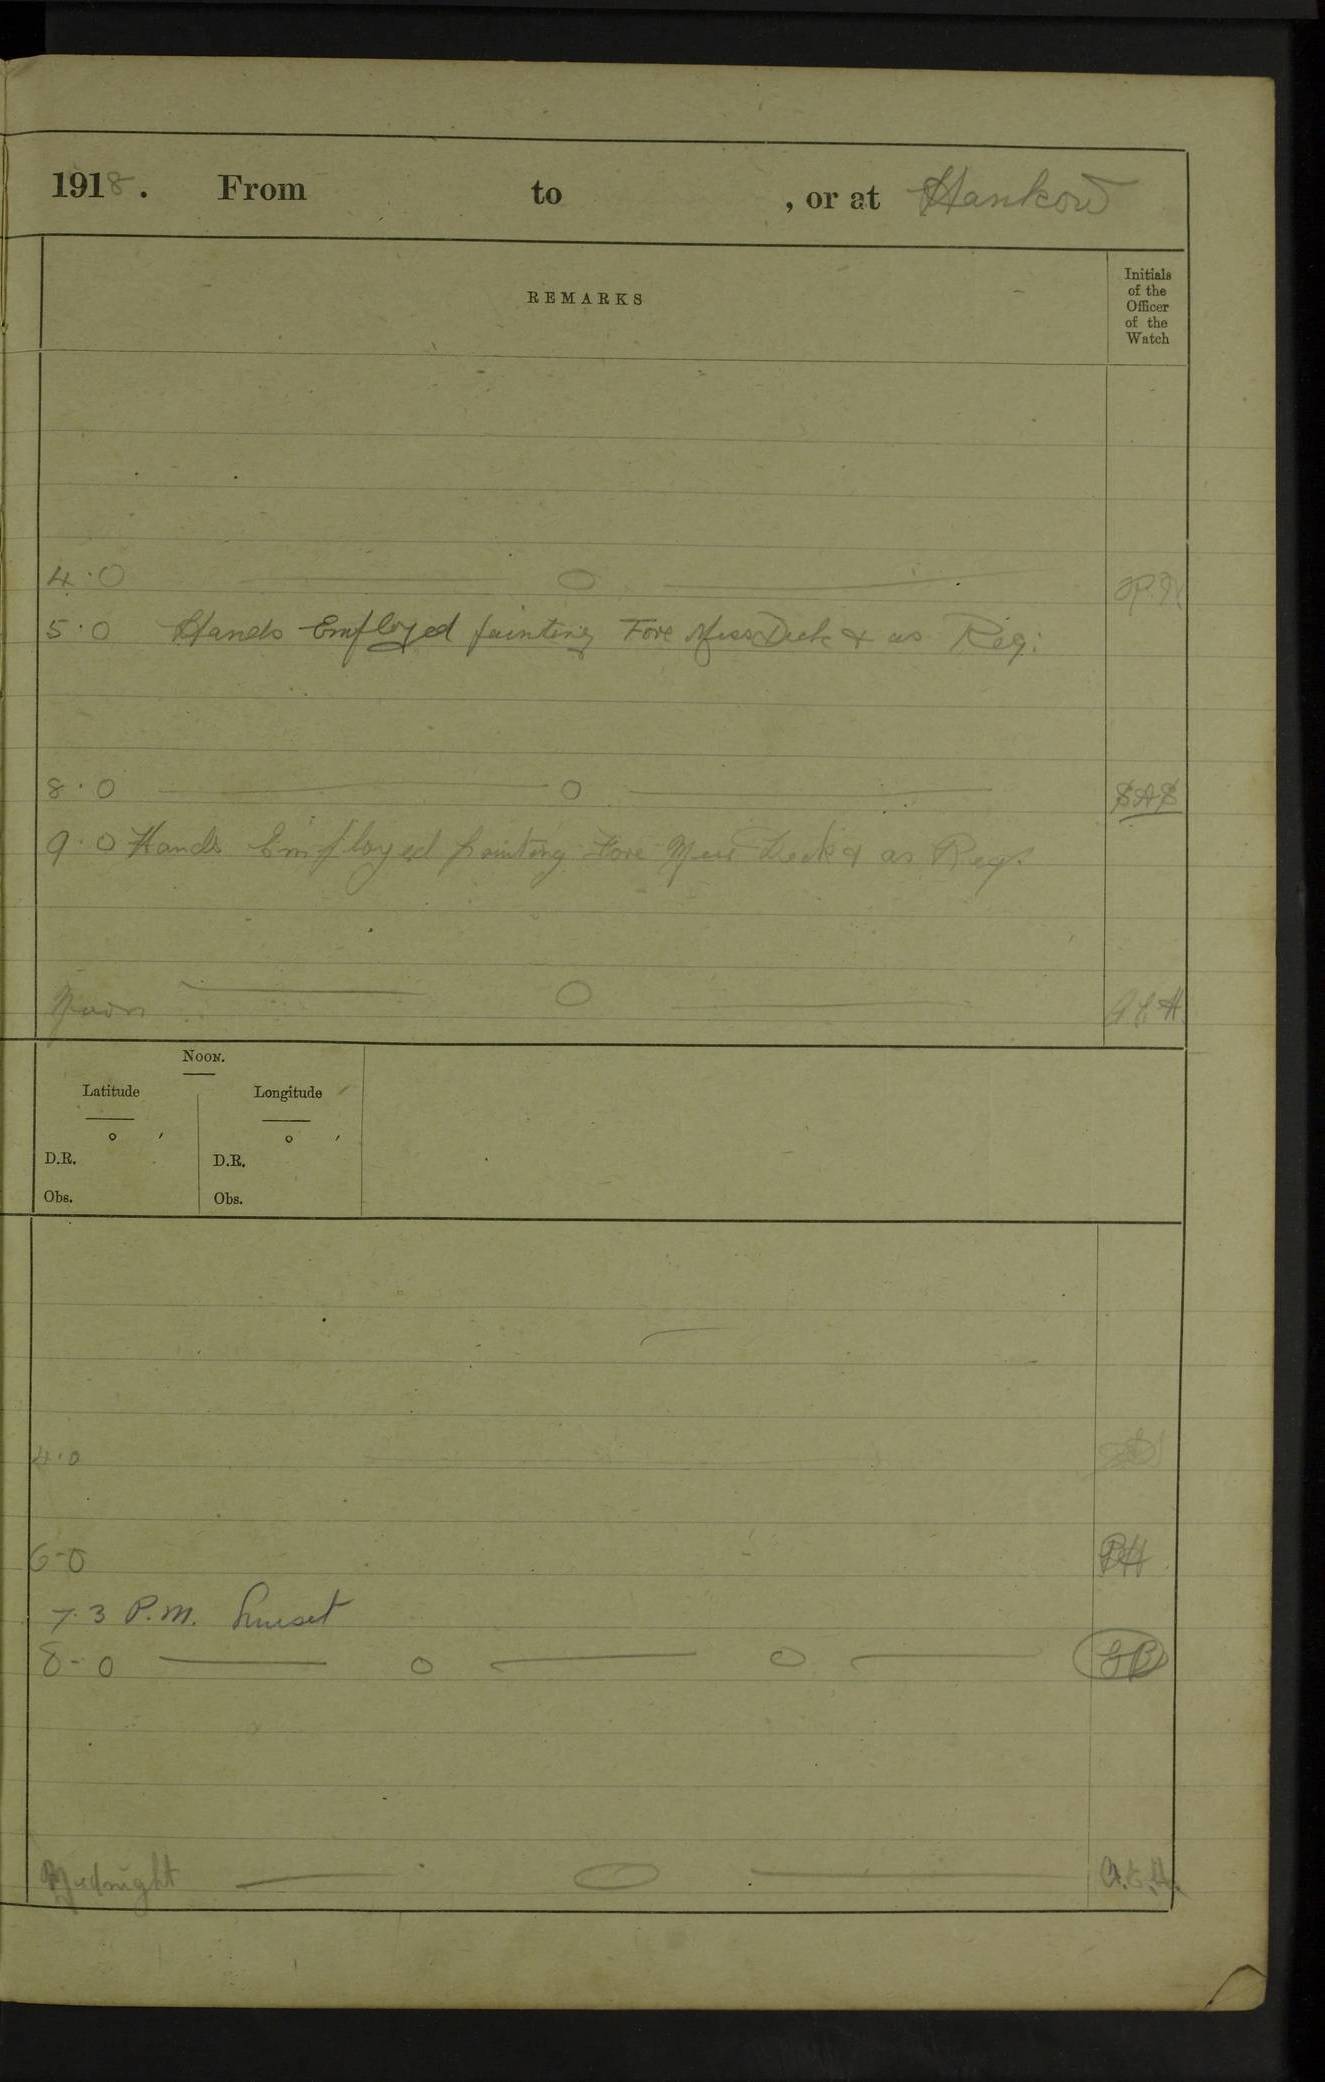 1918. From to , or at Hankow
REMARKS
Initials
of the
Officer
of the
Watch
4.0 —— 0 ——
5.0 Hands Employed painting Fore Mess Deck & as Req:
8.0 —— 0 —— SAS
9.0 Hands Employed painting Fore Mess Deck & as Req.
Noon —— 0 —— A.E.H.
NOON.
Latitude Longitude
° ′ ° ′
D.R. D.R.
Obs. Obs.
4.0
6-0 PH
7.3 P.M. Sunset
8-0 —— 0 —— 0 —— GB
Midnight —— 0 —— A.E.H.